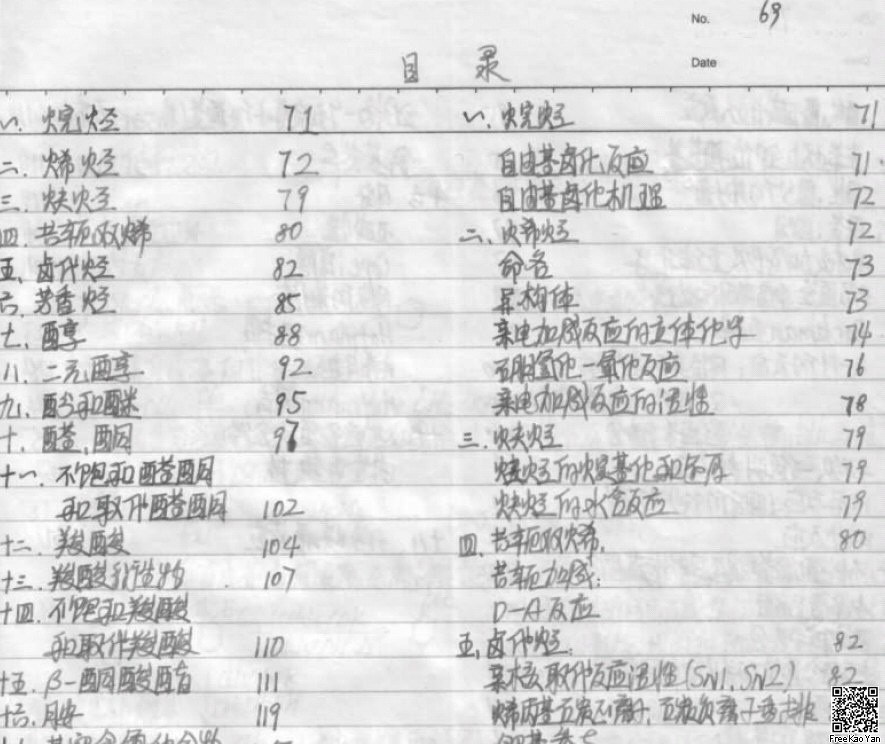 No. 69
目 录
Date
一. 烷烃 71
二. 烯烃 72
三. 炔烃 79
四. 共轭双烯 80
五. 卤代烃 82
六. 芳香烃 85
七. 酚醇 88
八. 二元酚醇 92
九. 酚和醌 95
十. 醛,酮 97
十一. 不饱和醛酮
和取代醛酮 102
十二. 羧酸 104
十三. 羧酸衍生物 107
十四. 不饱和羧酸
和取代羧酸 110
十五. β-酮酸酯 111
十六. 胺 119
一. 烷烃 71
自由基卤代反应 71
自由基卤代机理 72
二. 烯烃 72
命名 73
异构体 73
亲电加成反应的立体化学 74
硼氢化-氧化反应 76
亲电加成反应的活性 78
三. 炔烃 79
炔烃的烷基化和还原 79
炔烃的水合反应 79
四. 共轭双烯. 80
共轭加成:
D-A反应
五. 卤代烃: 82
亲核取代反应活性(SN1, SN2) 82
FreeKaoYan